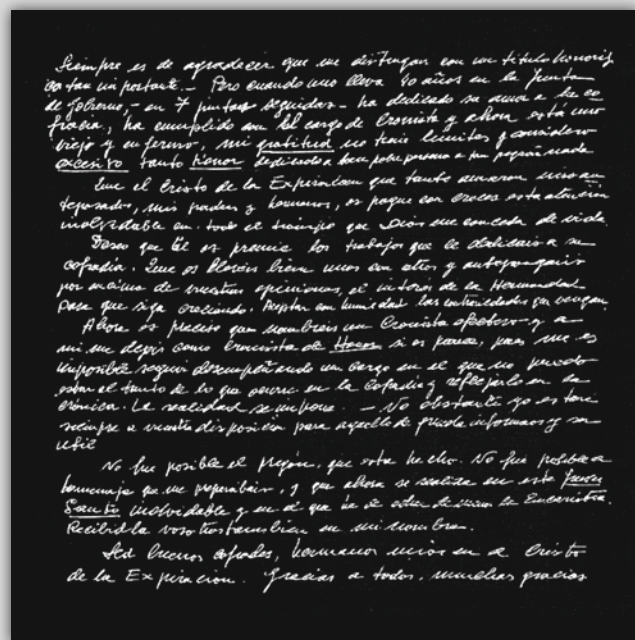 Siempre es de agradecer que me distingan con un titulo honorifi
co tan importante. - Pero cuando uno lleva 40 años en la Junta
de Gobierno, - en 7 juntas seguidas - ha dedicado su amor a la co
fradia, ha cumplido con el cargo de Cronista y ahora está uno
viejo y enfermo, mi gratitud no tiene limites y considero
excesivo tanto honor dedicado a tan pobre persona a tan pequeña nada
Que el Cristo de la Expiracion que tanto amaron mis an
tepasados, mis padres y hermanos, os pague con creces esta atención
inolvidable en todo el tiempo que Dios me conceda de vida.
Deseo que Él os premie los trabajos que le dedicais a su
cofradía. Que os lleveis bien unos con otros y antepongais
por encima de vuestras opiniones, el interés de la Hermandad
para que siga creciendo. Aceptar con humildad las contrariedades que vengan.
Ahora es preciso que nombreis un Cronista efectivo y a
mi me dejeis como Cronista de Honor si os parece, pues me es
imposible seguir desempeñando un cargo en el que no puedo
estar al tanto de lo que ocurre en la Cofradia y reflejarlo en la
crónica. La realidad se impone. - No obstante yo estaré
siempre a vuestra disposición para aquello de pueda informaros y ser
util
No fue posible el pregón, que esta hecho. No fue posible el
homenaje que me preparabais, y que ahora se realiza en este Jueves
Santo inolvidable y en el que va a la Eucaristia.
Recibidla vosotros tambien en mi nombre.
Sed buenos cofrades, hermanos mios en el Cristo
de la Expiracion. Gracias a todos, muchas gracias